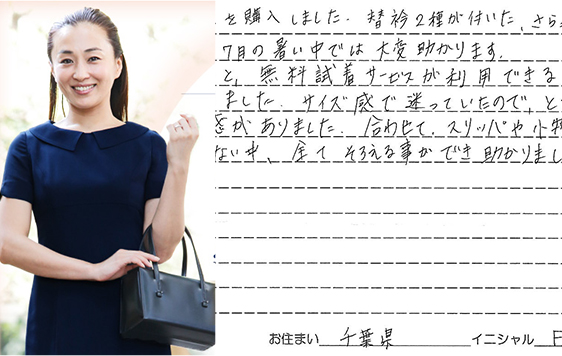 を購入しました。替衿2種が付いた、さら
7月の暑い中では大変助かります。
と、無料試着サービスが利用できる
ました。サイズ感で迷っていたので、と
がありました。合わせて、スリッパや小物
ない中、全てそろえる事ができ助かりまし
お住まい 千葉県 イニシャル